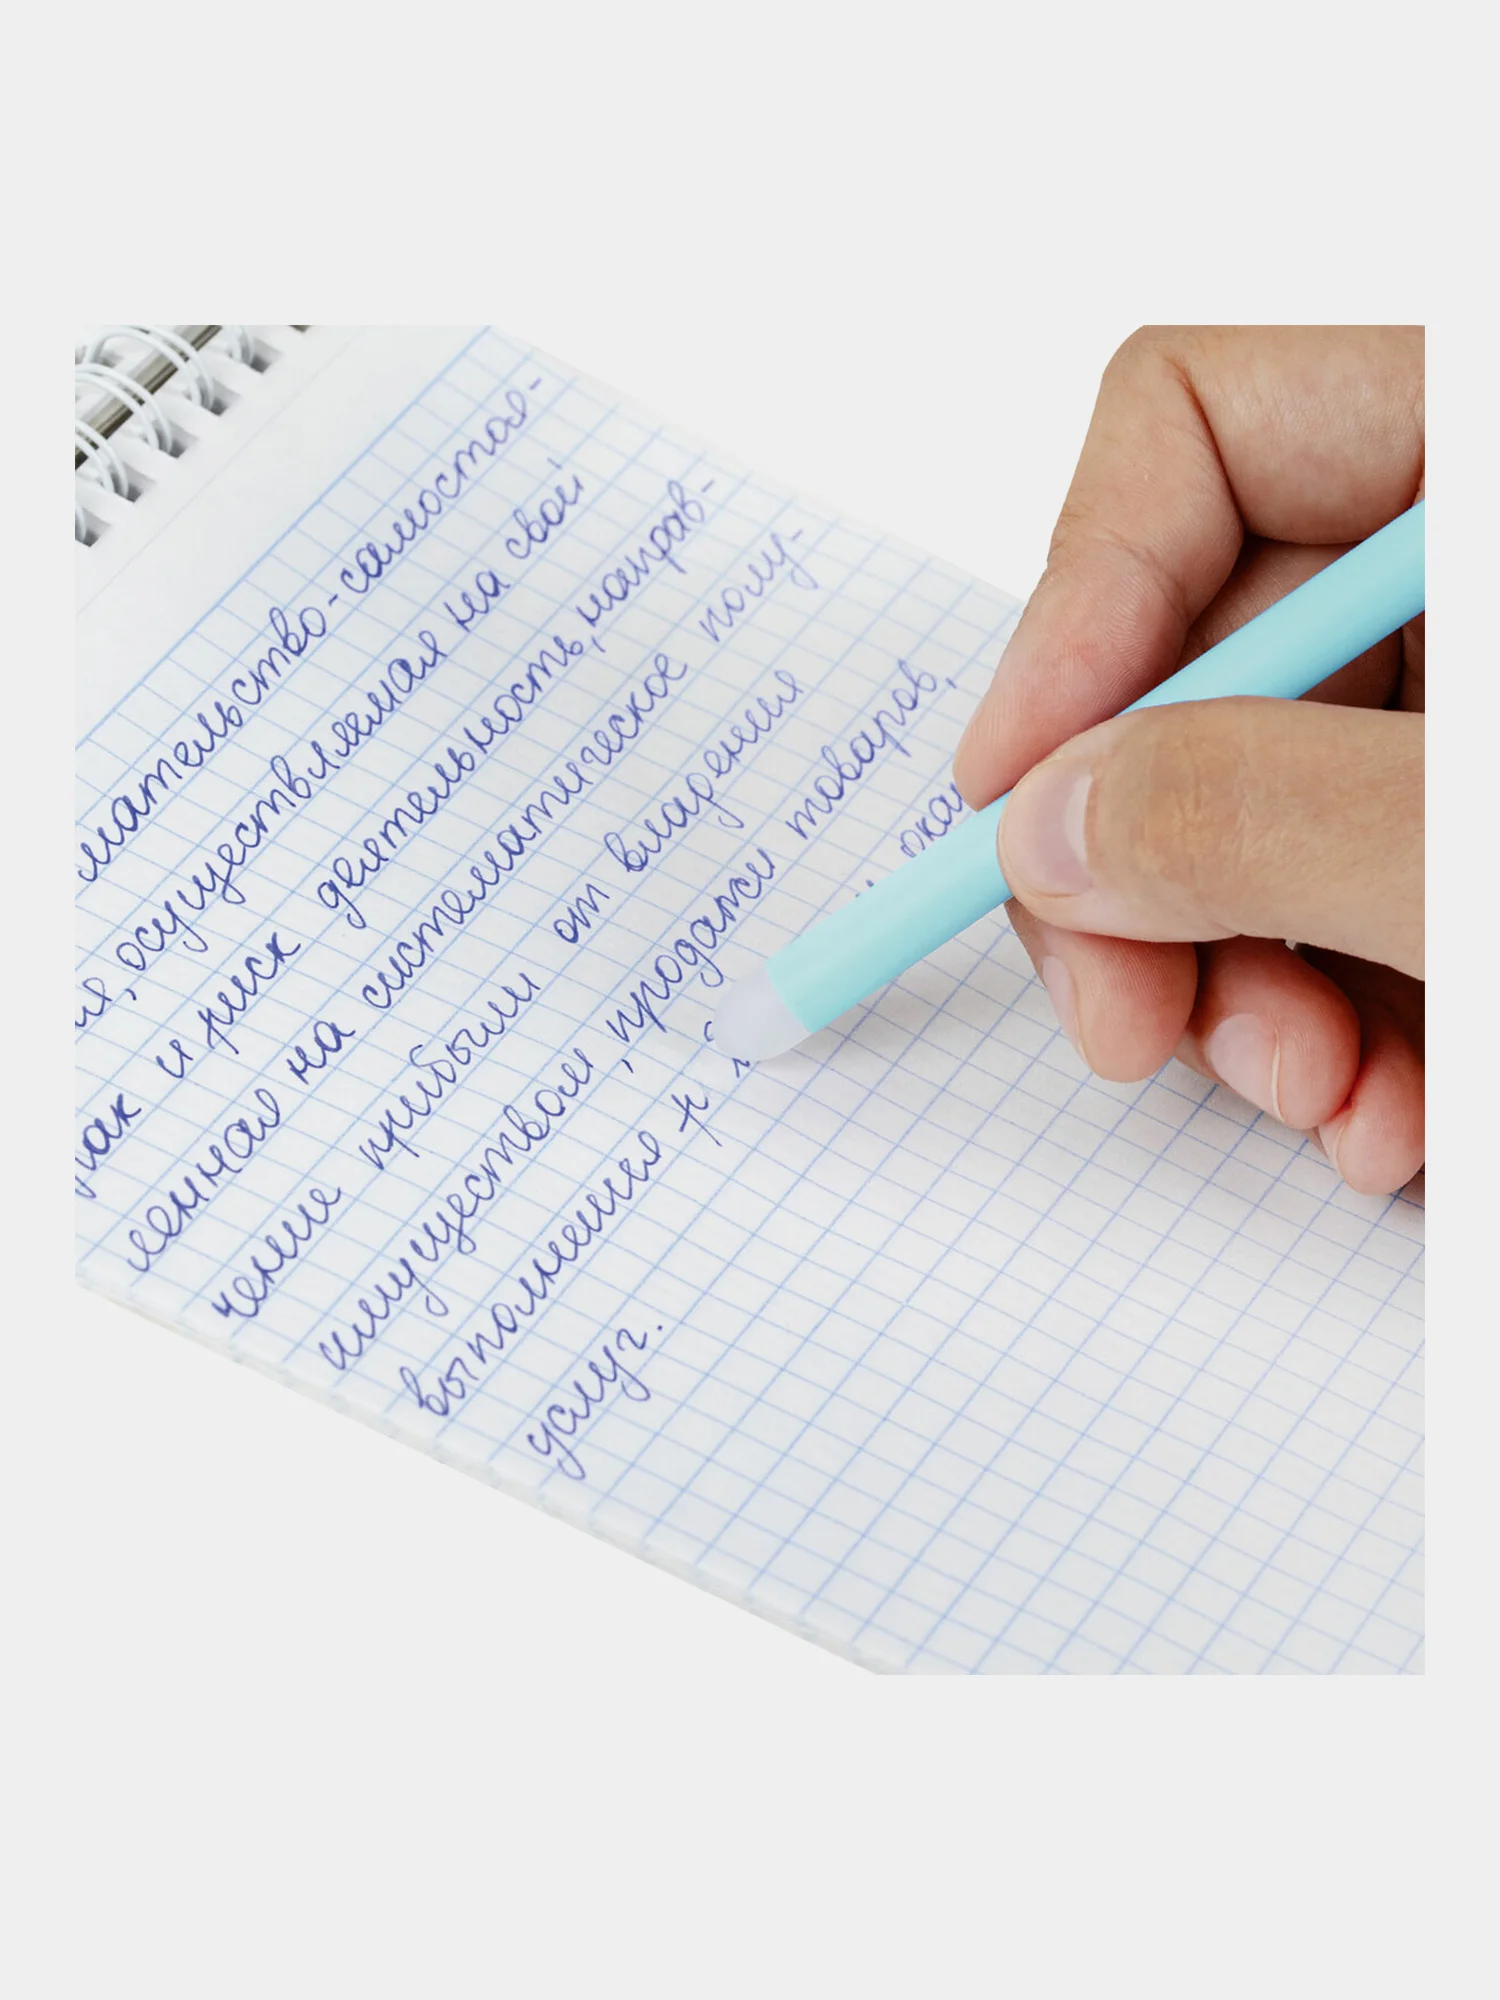 мательство-самостоя-
осуществляемая на свой
и риск деятельность, направ-
ленная на систематическое полу-
чение прибыли от владения
имуществом, продажи товаров,
выполнения р
услуг.